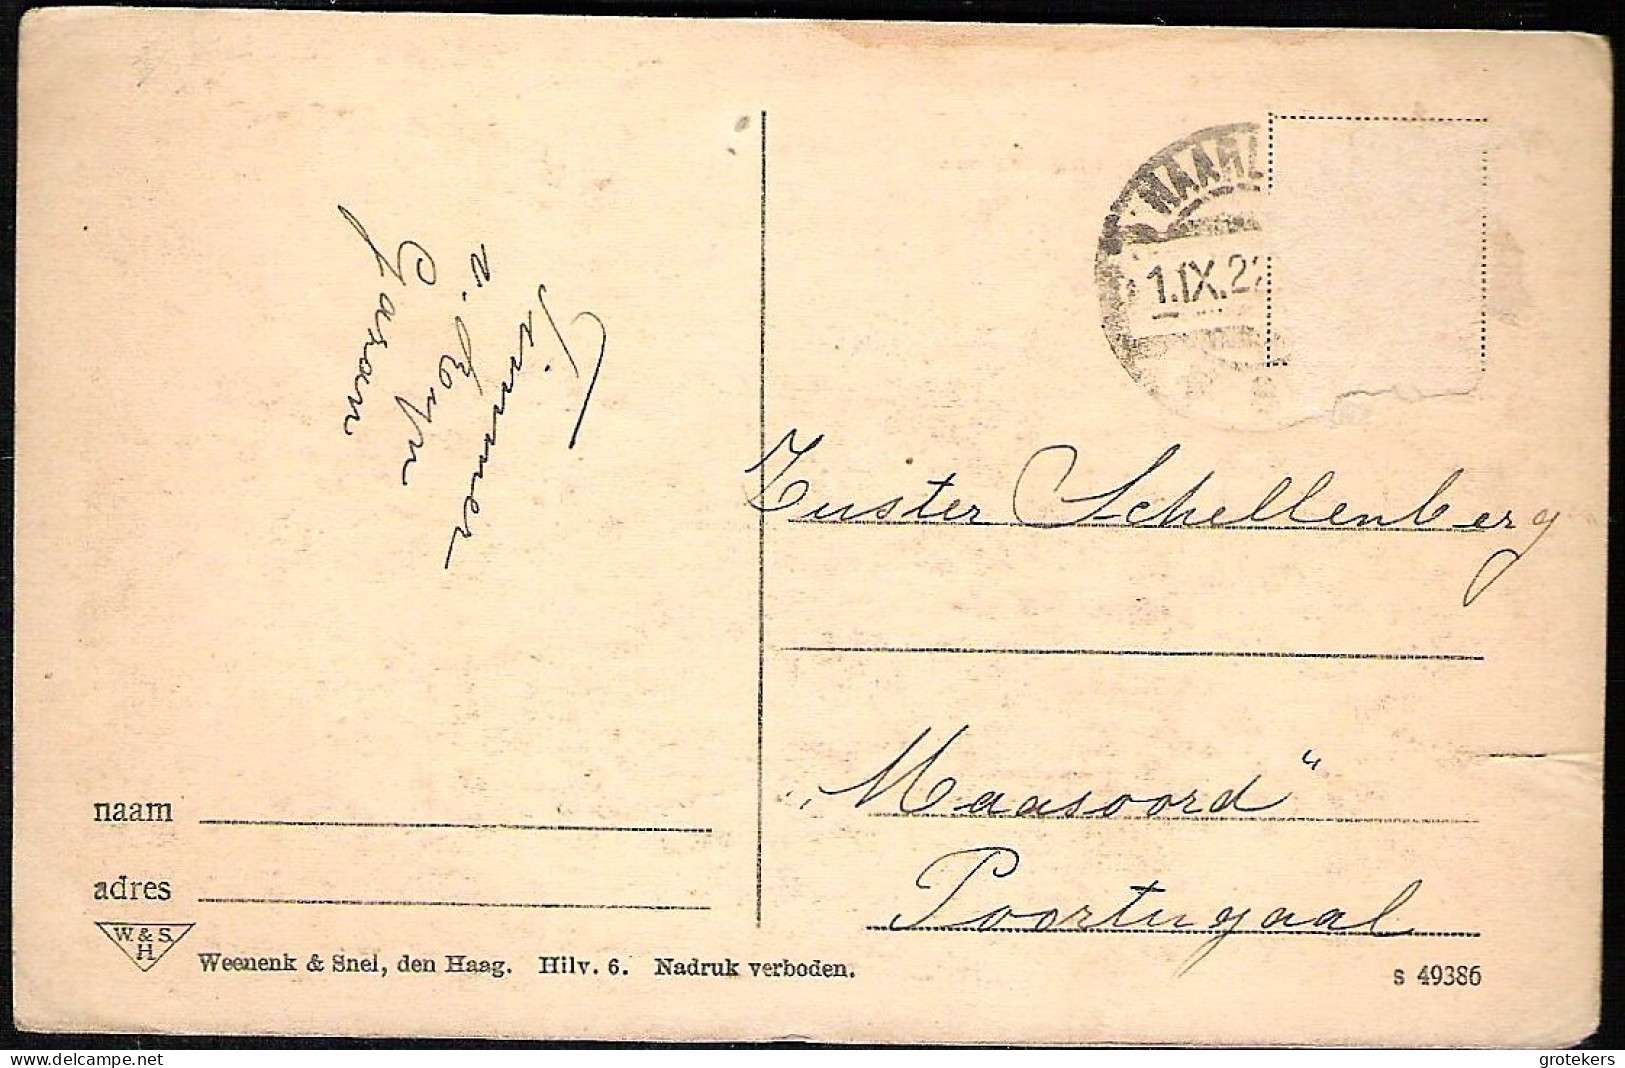 Timmer
v. Eyn
Garan
HAARL
1.IX.22
Zuster Schellenberg
„Maasoord"
Poortugaal
naam
adres
W. & S.
H
Weenenk & Snel, den Haag. Hilv. 6. Nadruk verboden.
s 49386
delcampe.net
grotekers